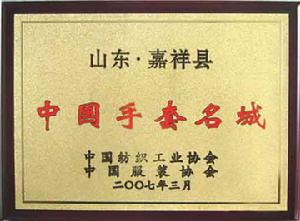 山东·嘉祥县
中国手套名城
中国纺织工业协会
中国服装协会
二〇〇七年三月